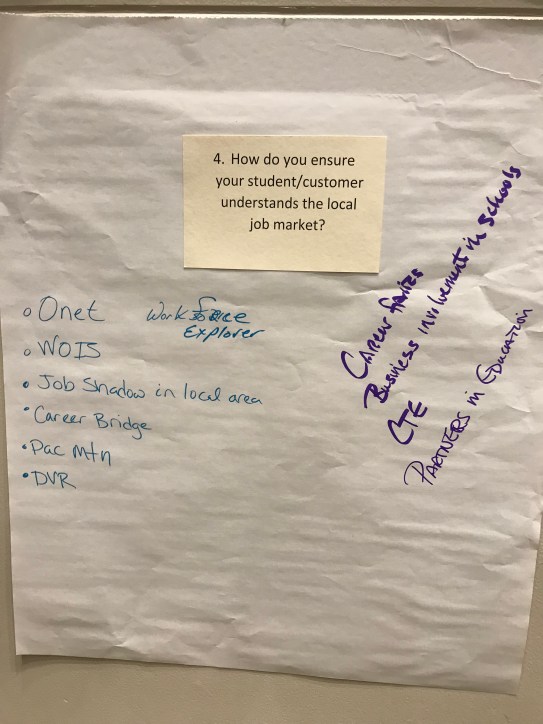 4. How do you ensure
your student/customer
understands the local
job market?
Onet
Workforce
Explorer
WOIS
Job Shadow in local area
Career Bridge
Pac Mtn
DVR
Career
Business involvement in schools
CTE
Partners in Education